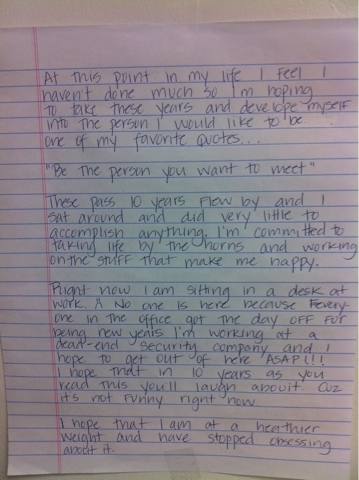 At this point in my life I feel I
haven't done much so I'm hoping
to take these years and develope myself
into the person I would like to be
one of my favorite quotes...
"Be the person you want to meet"
These pass 10 years flew by and I
sat around and did very little to
accomplish anything. I'm committed to
taking life by the horns and working
on the stuff that make me happy.
Right now I am sitting in a desk at
work. A No one is here because Every-
one in the office got the day off for
being new years I'm working at a
dead-end security company and I
hope to get out of here ASAP!!!
I hope that in 10 years as you
read this you'll laugh about it. Cuz
it's not funny right now
I hope that I am at a heathier
weight and have stopped obsessing
about it.